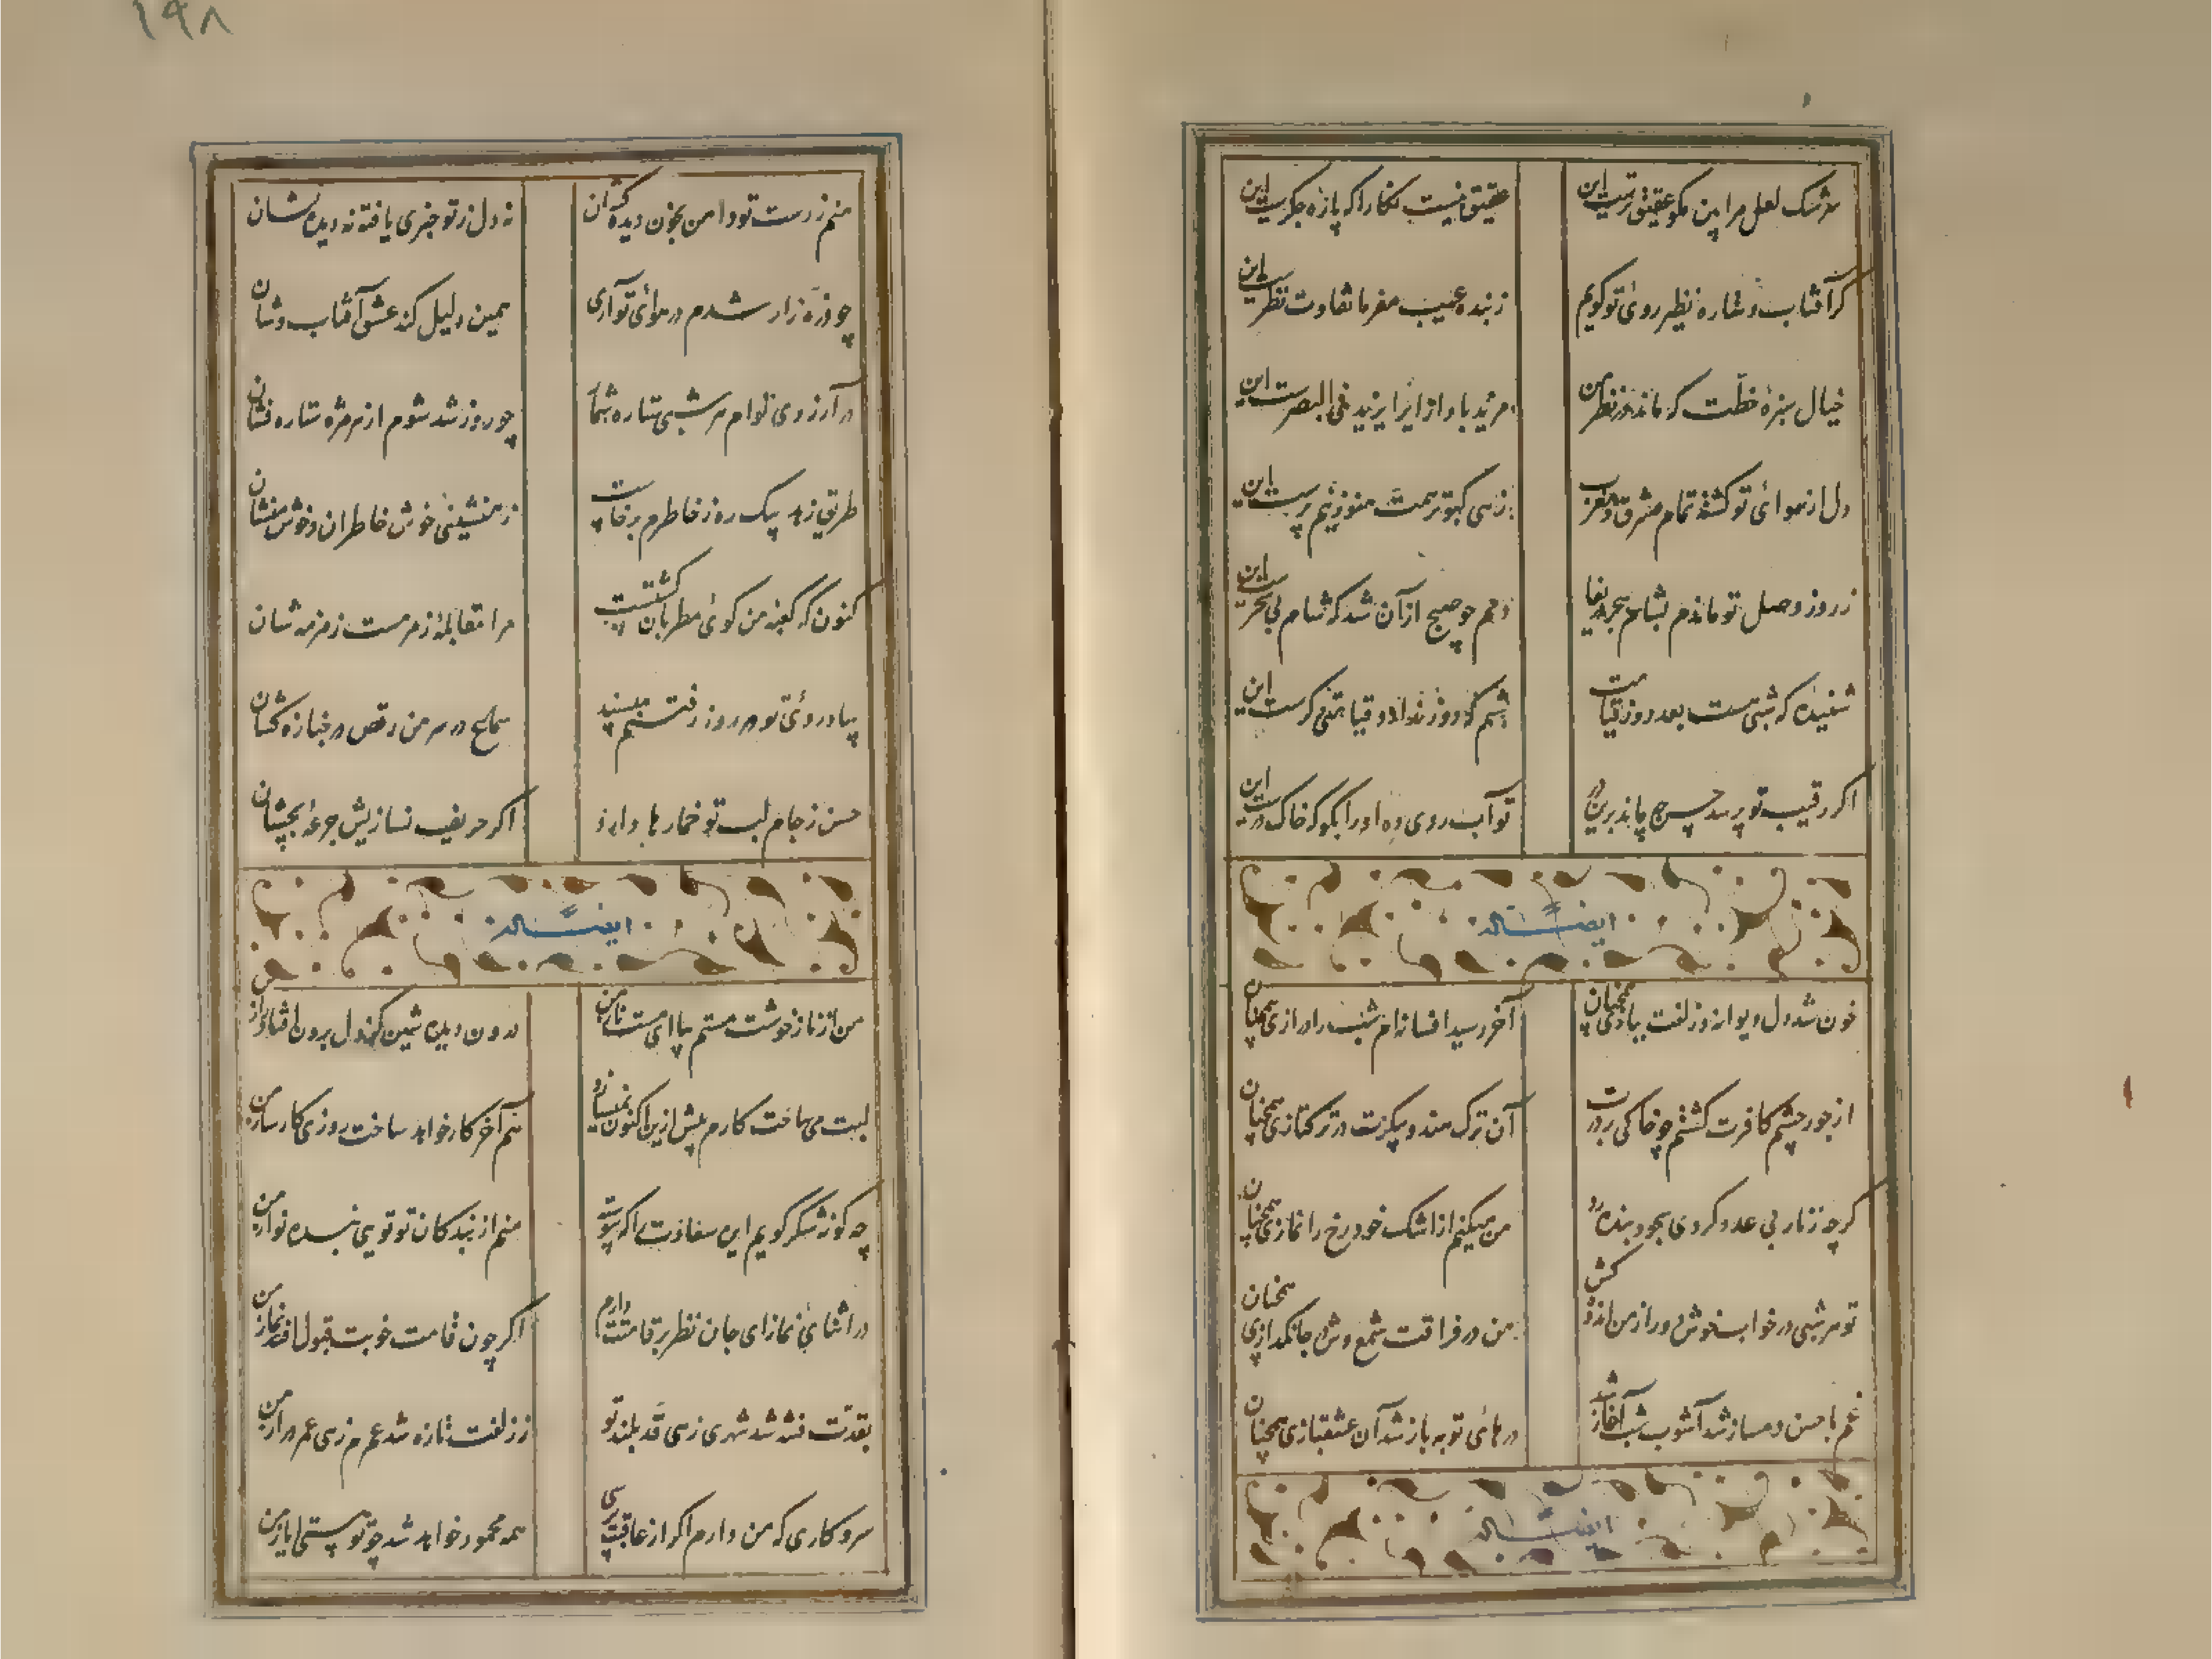 سرشک لعل مرا بین مگو عقیق ترست این
عقیق نیست نگارا که پاره جگرست این
گر آفتاب و ستاره نظیر روی تو گویم
ز بنده عیب مفرما تفاوت نظرست این
خیال سبزه خطت که ماند در نظر من
مزید باد از ایرا یزید فی البصرست این
دل از هوای تو کشته تمام مشرق و مغرب
زهی کبوتر همت هنوز نیم پرست این
ز روز وصل تو ماندم بشام هجر
دمم چو صبح از آن شد که شام بی سحرست این
شنیده که شبی هست بعد روز قیامت
شبم که روز ندارد قیامتی دگرست این
اگر رقیب تو پرسد حسن چه باید برین در
تو آب روی ده او را بگو که خاک درست این
ایضا له
خون شد دل دیوانه وز لفت ببازی همچنان
آخر رسید افسانه‌ام شب را درازی همچنان
از جور چشم کافرت کشتم چو خاکی بر درت
آن ترک هندو پیکرت در ترکتازی همچنان
گر چه ز نار بی عدد کردی سجود بنده رد
من میکنم از اشک خود رخ را نمازی همچنان
تو هر شبی در خواب خوش و راز من اندوه کش
من در فراقت شمع وش در جانگدازی همچنان
غم با حسن دمساز شد آشوب شب آغاز شد
درهای توبه باز شد آن عشقبازی همچنان
ایضا له
۱۹۸
منم ز دست تو دامن بخون دیده کشان
نه دل ز تو خبری یافته نه دیده نشان
چو ذره زار شدم در هوای تو آری
همین دلیل کند عشق آفتاب وشان
در آرزوی تو ام هر شبی ستاره شمار
چو روز شد شوم از هر مژه ستاره فشان
طریق زهد بیک ره ز خاطرم برخاست
ز همنشینی خوش خاطران و خوش منشان
کنون که کعبه من کوی مطربان گشتست
مرا مقابله زمزمست زمزمه شان
بیاد روی تو هر روز رفتنم مپسند
سماع در سر من رقص در جنازه کشان
حسن ز جام لب تو خمارها دارد
اگر حریف نسازیش جرعه بچشان
ایضا له
من از ناز خوشت مستم بیا ای مست ناز من
درون دیده شین کز دل برون افتاد راز من
لبت می ساخت کارم پیش ازین اکنون نمیسازد
هم آخر کار خواهد ساخت روزی کارساز من
چه گونه شکر گویم این سعادت را که پیوسته
منم از بندگان تو تویی بنده نواز من
در اثنای نماز ای جان نظر بر قامتت دارم
اگر چون قامت خوبت قبول افتد نماز من
بقدت فتنه شد شهری زهی قد بلند تو
ز زلفت تازه شد عمرم زهی عمر دراز من
سر و کاری که من دارم اگر از عاقبت پرسی
همه محمود خواهد شد چو تو هستی ایاز من